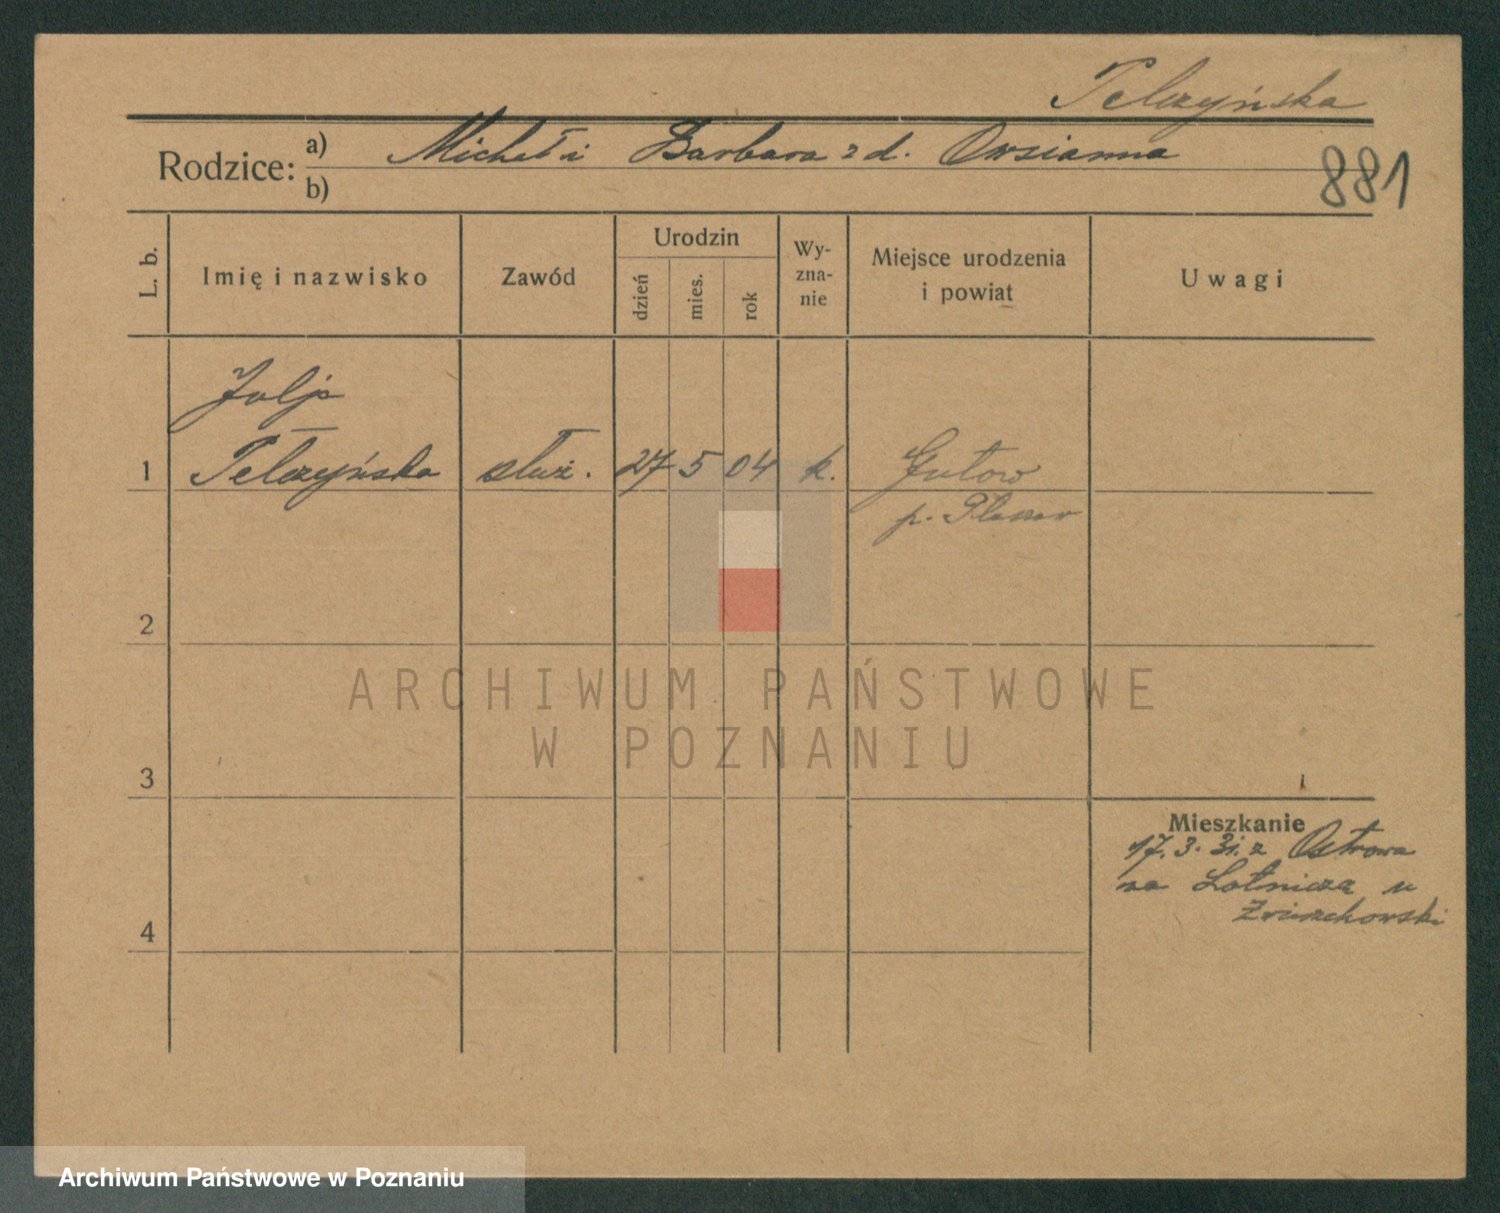 Pelczyńska
Rodzice: a) Michał i Barbara z d. Owsianna
b)
881
L. b.
Imię i nazwisko
Zawód
Urodzin
dzień
mies.
rok
Wy-
zna-
nie
Miejsce urodzenia
i powiat
Uwagi
Julja
1 Pelczyńska służ. 27 5 04 k. Gutow
p. Pleszew
2
3
ARCHIWUM PAŃSTWOWE
W POZNANIU
Mieszkanie
17. 3. 31. z Ostrowa
na Lotniczą u
4
Archiwum Państwowe w Poznaniu